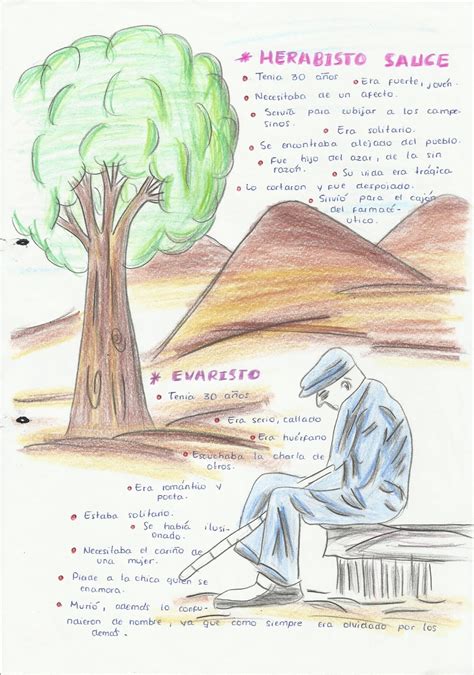 * HERABISTO SAUCE
• Tenia 30 años • Era fuerte, joven.
• Necesitaba de un afecto.
• Servía para cubijar a los campe-
sinos.
• Era solitario.
• Se encontraba alejado del pueblo.
• Fue hijo del azar, de la sin
razón. • Su vida era trágica
• Lo cortaron y fue despojado.
• Silvió para el cajón
del farmacé-
utico.
* EVARISTO
• Tenia 30 años
• Era serio, callado
• Era huérfano
• Escuchaba la charla de
otros.
• Era romántico y
poeta.
• Estaba solitario.
• Se había ilusi-
onado.
• Necesitaba el cariño de
una mujer.
• Pierde a la chica quien se
enamora.
• Murió, además lo confu-
ndieron de nombre, ya que como siempre era olvidado por los
demás.